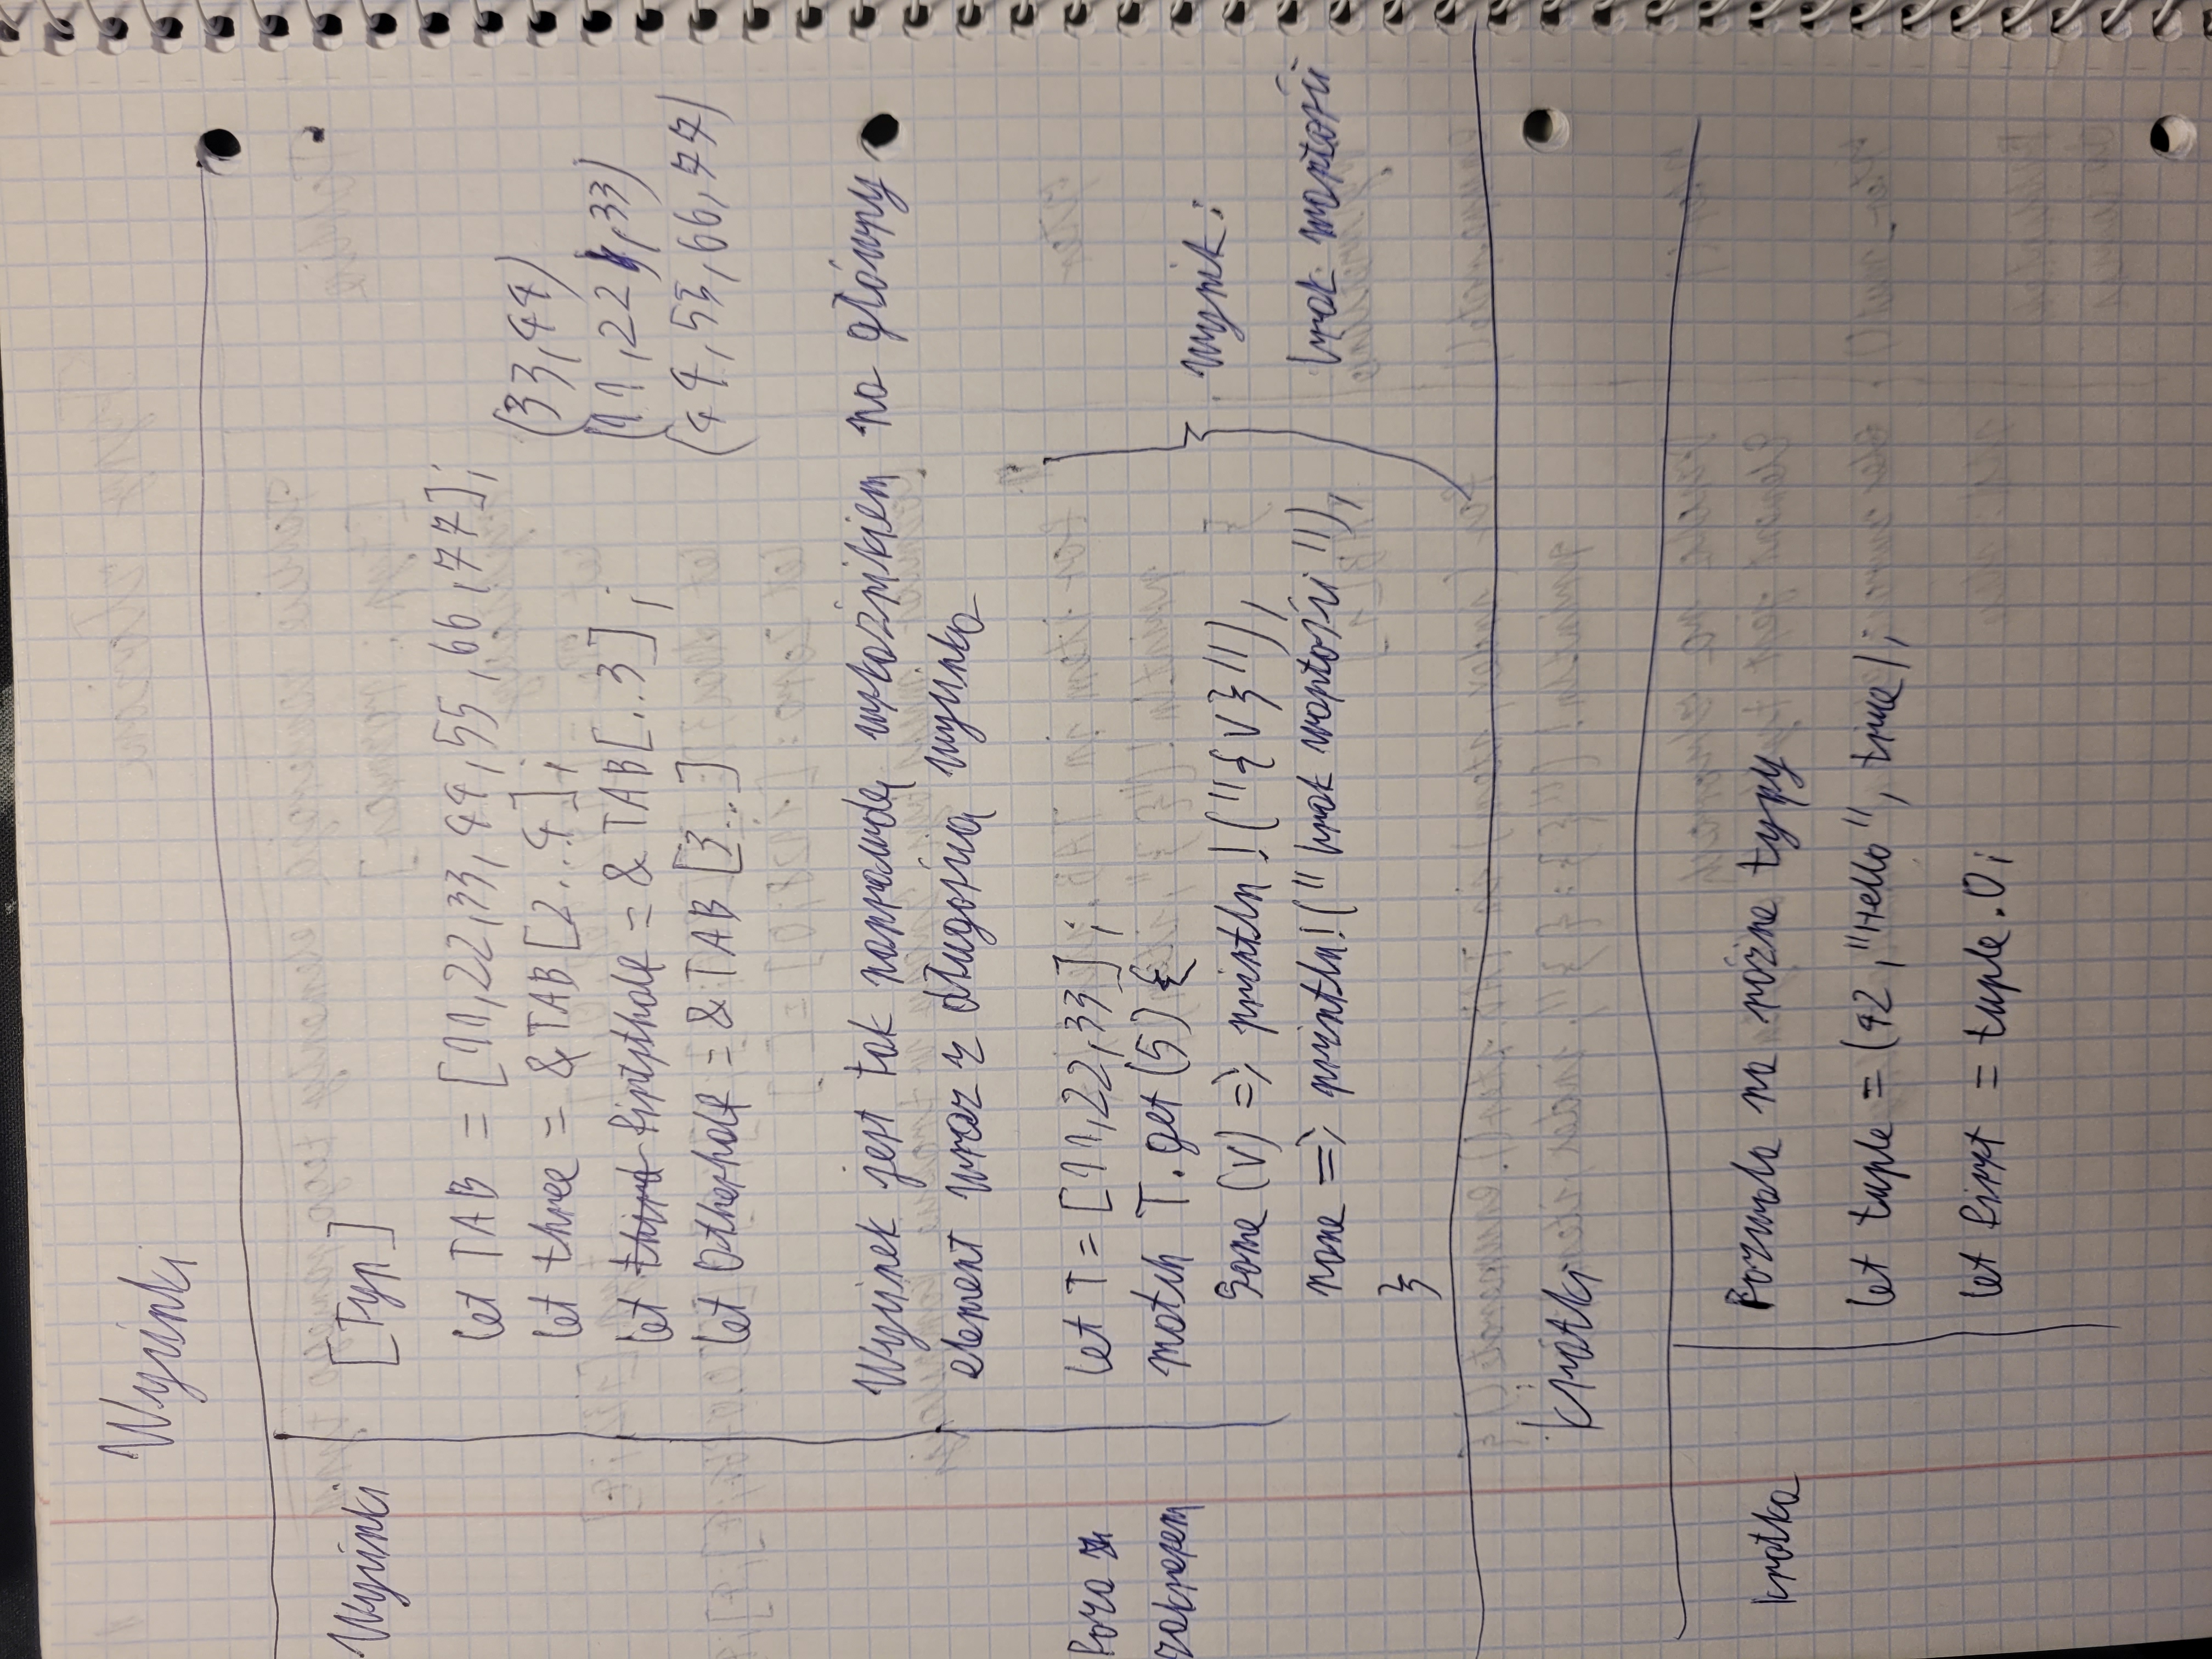 Wycinki
Wycinki [Typ]
let TAB = [11,22,33,44,55,66,77];
let three = &TAB[2..4]; (33,44)
let third firtsthalf = &TAB[..3]; (11,22,33)
let Otherhalf = &TAB[3..] (44,55,66,77)
Wycinek jest tak naprawdę wskaźnikiem na główny
element wraz z długością wycinka
Poza let T = [11,22,33];
zakresem match T.get(5) {
Some (v) => println!("{v}"), wynik:
none => println!("brak wartości"), brak wartości
}
krótki
krotka Pozwala na różne typy
let tuple = (42,"Hello", true);
let first = tuple.0;